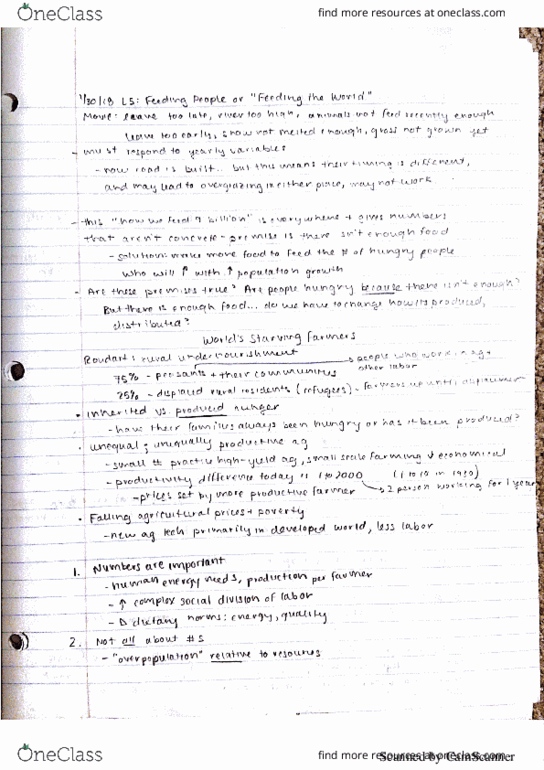 OneClass
find more resources at oneclass.com
1/30/18 L5: Feeding People or "Feeding the World"
Move: leave too late, river too high, animals not feed recently enough
leave too early, snow not melted enough, grass not grown yet
- must respond to yearly variables
- now road is built... but this means their timing is different,
and may lead to overgrazing in either place, may not work
- this "how we feed 9 billion" is everywhere + gives numbers
that aren't concrete - premise is there isn't enough food
- solution: make more food to feed the # of hungry people
who will ↑ with ↑ population growth
- Are these premises true? Are people hungry because there isn't enough?
But there is enough food... do we have to change how it's produced,
distributed?
World's Starving Farmers
Roudart: rural undernourishment
→ people who work in ag +
other labor
75% - peasants + their communities
25% - displaced rural residents (refugees) - farmers up until displacement
• inherited vs. produced hunger
- have their families always been hungry or has it been produced?
• unequal; unequally productive ag
- small # practice high-yield ag, small scale farming ↓ economical
- productivity difference today is 1 to 2000 (1 to 10 in 1950)
- prices set by more productive farmer → 2 person working for 1 year
• Falling agricultural prices + poverty
- new ag tech primarily in developed world, less labor
1. Numbers are important
- human energy needs, production per farmer
- ↑ complex social division of labor
- Δ dietary norms: energy, quality
2. Not all about #s
- "overpopulation" relative to resources
OneClass
find more resources at oneclass.com
Scanned by CamScanner